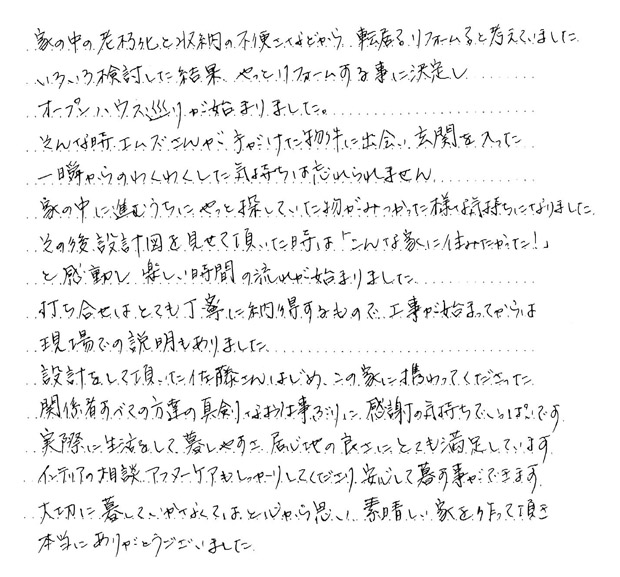 家の中の老朽化と収納の不便さなどから、転居るリフォームると考えていました
いろいろ検討した結果、やっとリフォームする事に決定し
オープンハウス巡りが始まりました。
そんな時、エムズさんが手がけた物件に出会い玄関を入った
一瞬からのわくわくした気持ちは忘れられません
家の中に進むうちにやっと探していた物がみつかった様な気持ちになりました
その後、設計図を見せて頂いた時は「こんな家に住みたかった!」
と感動し楽しい時間の流れが始まりました
打ち合せはとても丁寧に納得するもので、工事が始まってからは
現場での説明もありました
設計をして頂いた佐藤さんはじめ、この家に携わってくださった
関係者すべての方達の真剣なお仕事ぶりに感謝の気持ちでいっぱいです
実際に生活をして暮しやすさ、居心地の良さにとても満足しています
インテリアの相談、アフターケアもしっかりしてくださり、安心して暮す事ができます
大切に暮していかなくてはと心から思い、素晴しい家を作って頂き
本当にありがとうございました